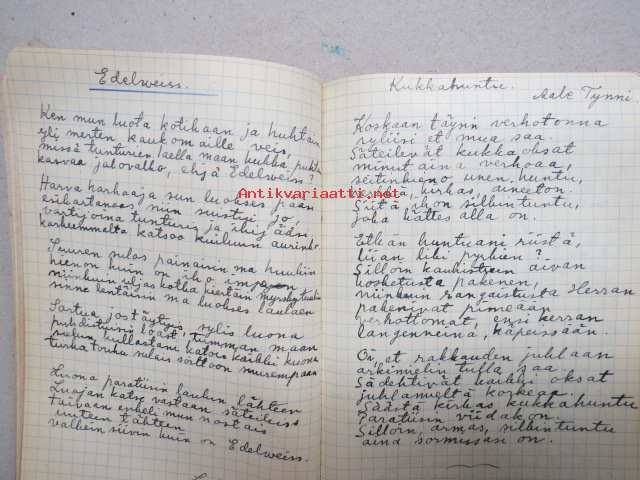 Edelweiss.
Ken mun luota kotihaan ja huhtain
yli merten kaukomaille veis,
missä tunturien laella maan kukka puhtain
kasvaa jalovalko, ehjä Edelweiss?
Harva harhaaja sun luokses pään
esikartanoos niin suistui jo
vartijoina tunturis ja
karheemmelta katsoo kuiluun aurinko
Suuren sulos painaisin ma huuliin
hienon kuin on iho
niinkuin uljas kotka kiertäin myrskytuuliin
sinne kentäisin ma luokses laulaen
Sortua jos täytyis, sylis luona
puhdistuisin tumman maan
katsois kaikki kuona
turha touhu suleis sorttoon suurempaan
Hurona paratiisin lauhan lähteen
Luojan katse vastaan säteileis
taivaan enkeli mun nostais
uuteen tähteen
valkein siivin kuin on Edelweiss.
Kukkahuntu.
Aale Tynni
Koskaan täysin verhotonna
syliisi et mua saa.
Säteilevät kukkaoksat
minut aina verhoaa,
seitinhieno unen huntu,
kirkas, aineeton.
Siitä ihon silkin tuntu,
joka kättes alla on.
Ethän huntuani riistä,
liian liki pyrkien?
Silloin kauhistuen aivan
kosketusta pakenen,
niinkuin rangaistusta Herran
pakenivat pimeään
verhottomat, ensi kerran
langenneina, häpeissään.
Oi, et rakkauden juhlaan
arkimielin tulla saa.
Sädehtivät kaikki oksat
juhlamieltä korkeaa.
Säästä kirkas kukkahuntu
Paratiisin viidakon.
Silloin, armas, silkin tuntu
aina sormissasi on.
Antikvariaatti.net